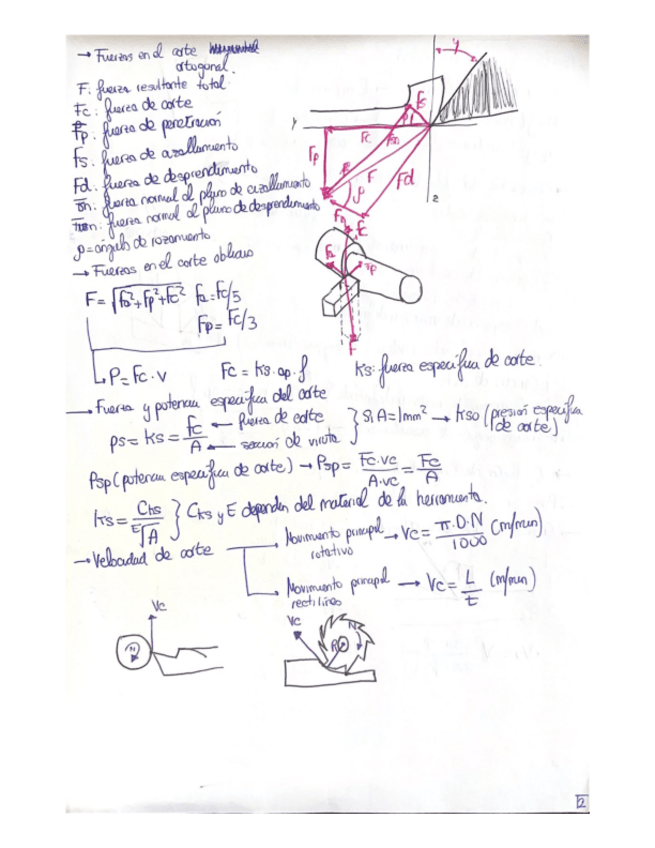 → Fuerzas en el corte
ortogonal.
F: fuerza resultante total
Fc: fuerza de corte
Fp: fuerza de penetración
Fs: fuerza de cizallamiento
Fd: fuerza de desprendimiento
σn: fuerza normal al plano de cizallamiento
fuerza normal al plano de desprendimiento
ρ = ángulo de rozamiento
→ Fuerzas en el corte oblicuo
F = √Fa²+Fp²+Fc² Fa = Fc/5
Fp = Fc/3
P = Fc · v Fc = Ks · ap · f Ks: fuerza específica de corte.
→ Fuerza y potencia específica del corte
ps = ks = Fc/A ← fuerza de corte ← sección de viruta } Si A = 1mm² → kso (presión específica de corte)
Psp (potencia específica de corte) → Psp = Fc·vc/A·vc = Fc/A
ks = Cks/ᴱ√A } Cks y E dependen del material de la herramienta.
Movimiento principal rotativo → Vc = π·D·N/1000 (m/min)
→ Velocidad de corte
Movimiento principal rectilíneo → Vc = L/t (m/min)
γ
Fs
Fc
Fp
F
ρ
Fd
Fn
z
Fc
Fa
Fp
F
Vc
N
Vc
R
N
2